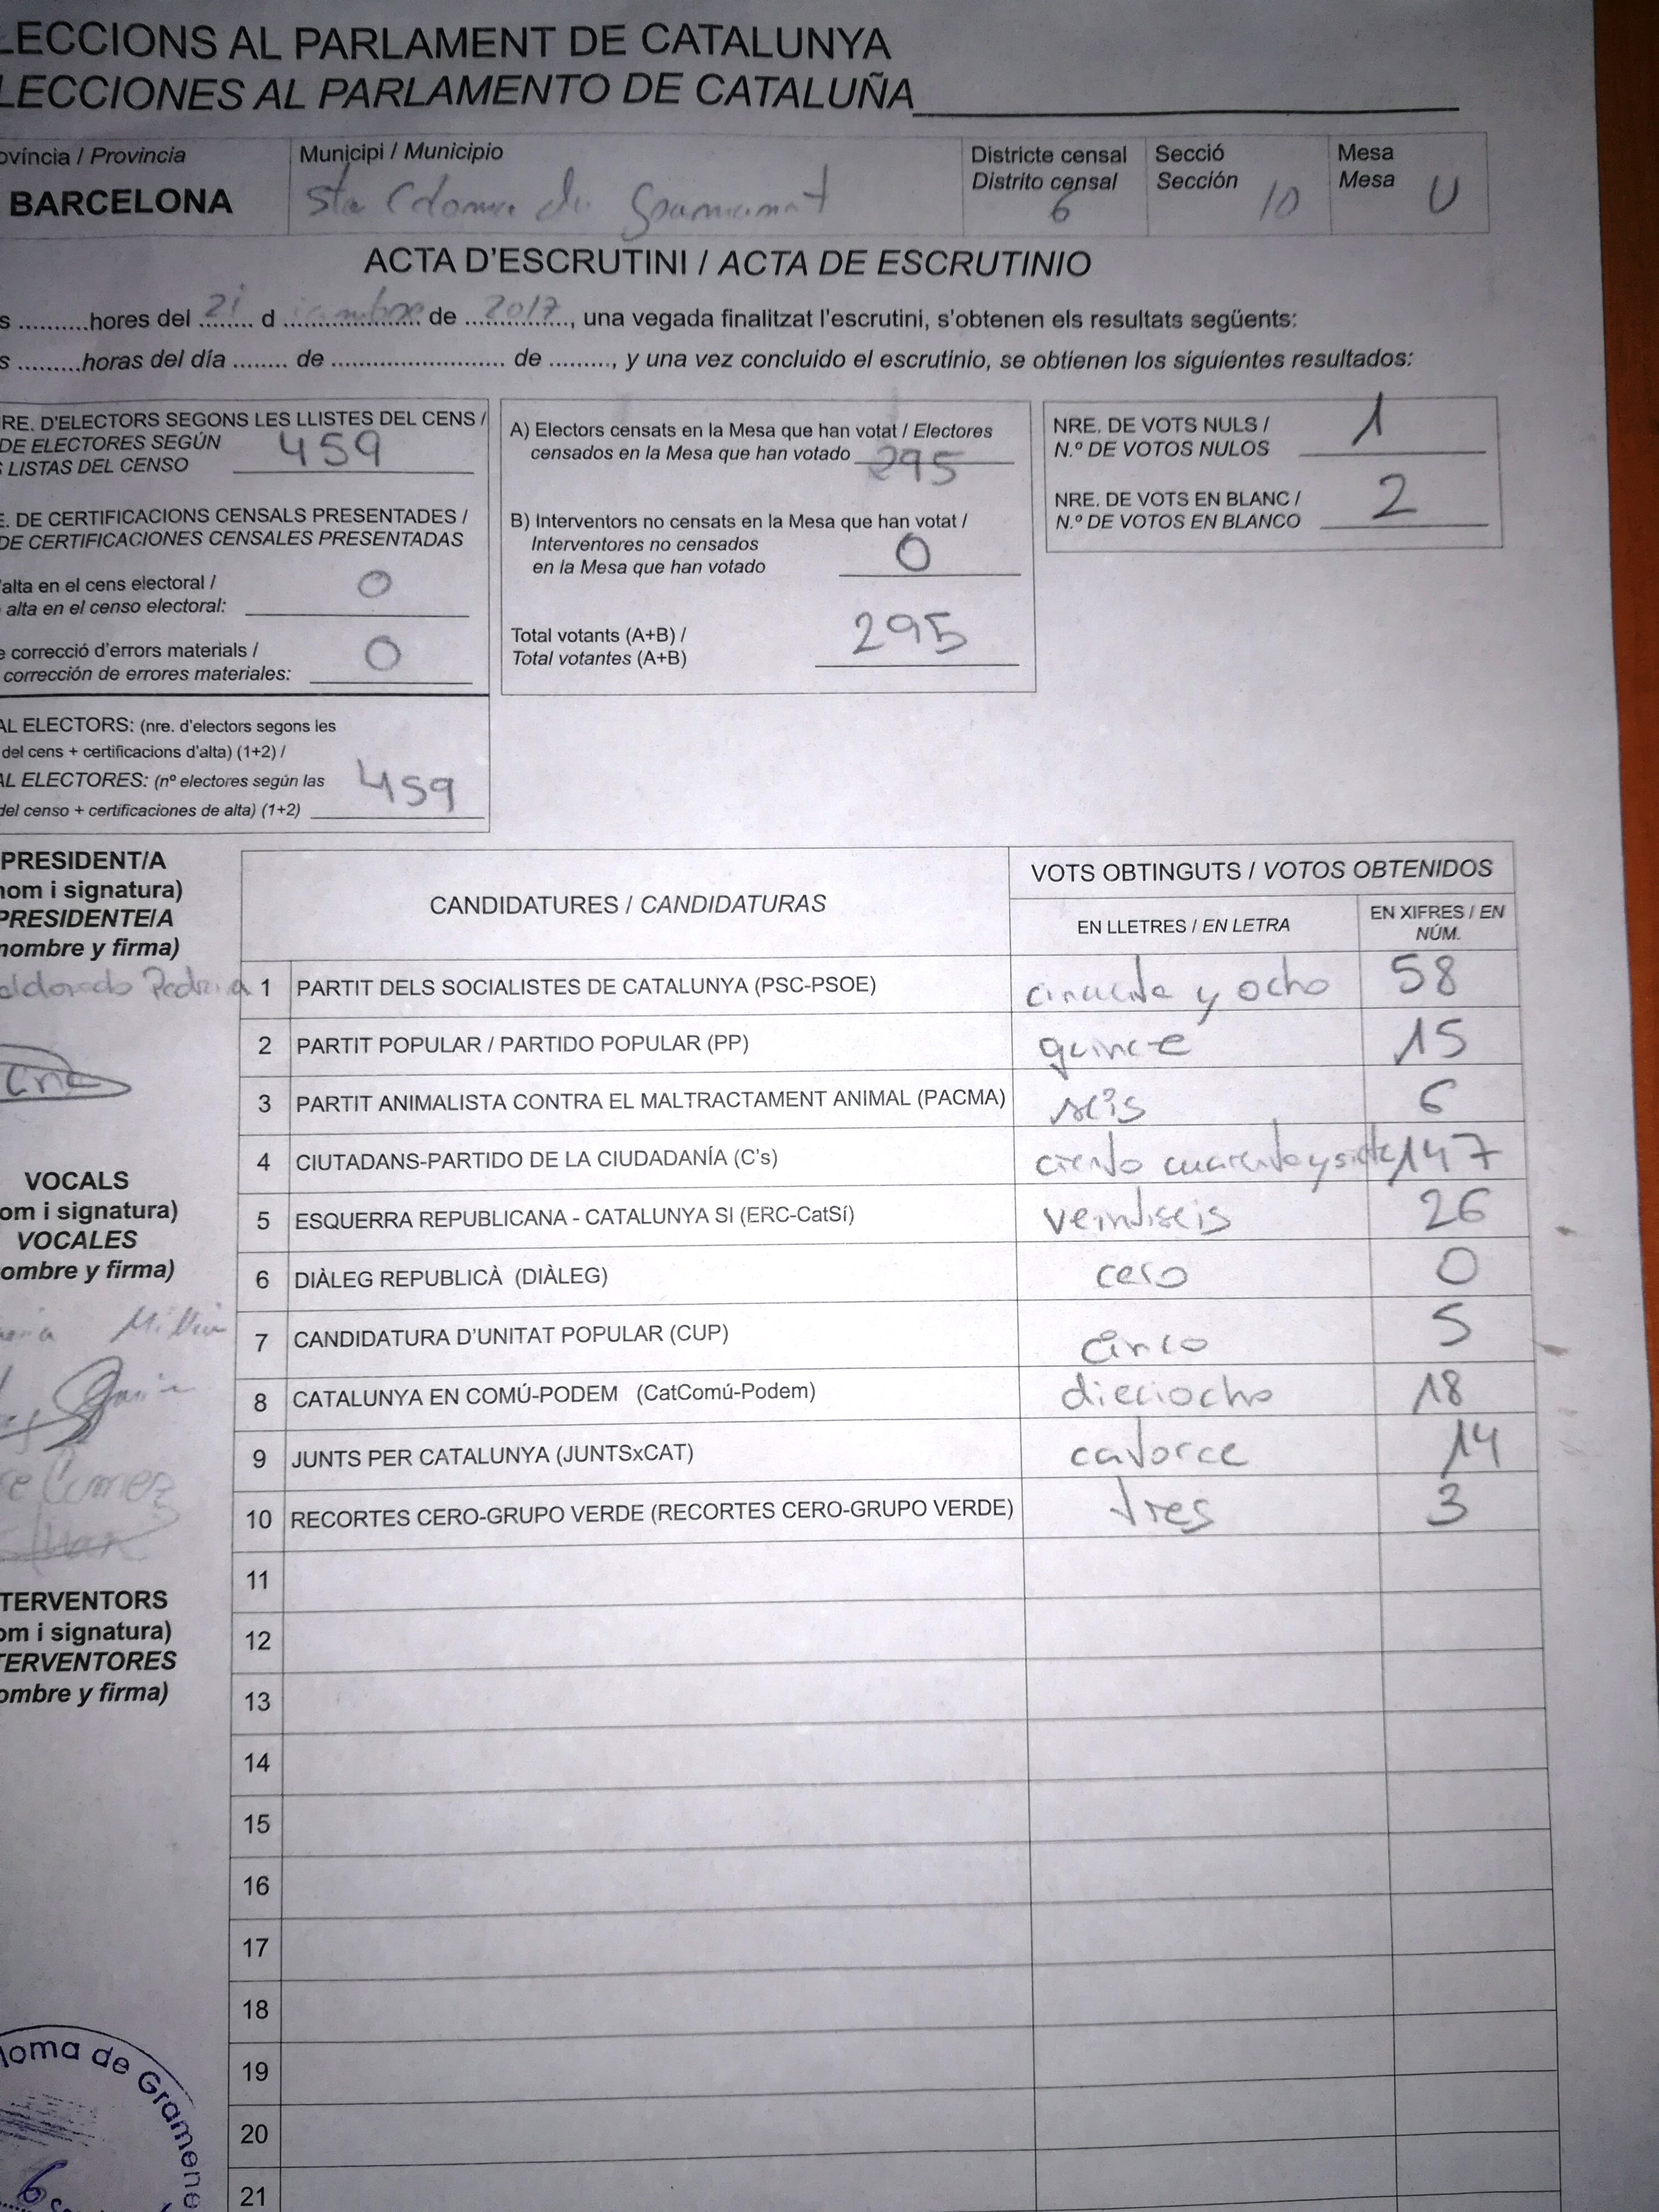 LECCIONS AL PARLAMENT DE CATALUNYA
LECCIONES AL PARLAMENTO DE CATALUÑA
ovíncia / Provincia
BARCELONA
Municipi / Municipio
Sta Coloma de Gramanet
Districte censal
Distrito censal
6
Secció
Sección
10
Mesa
Mesa U
ACTA D'ESCRUTINI / ACTA DE ESCRUTINIO
s ..........hores del 21 d ... de 2017, una vegada finalitzat l'escrutini, s'obtenen els resultats següents:
s ..........horas del día ........ de ........................ de ........., y una vez concluido el escrutinio, se obtienen los siguientes resultados:
RE. D'ELECTORS SEGONS LES LLISTES DEL CENS /
DE ELECTORES SEGÚN
LISTAS DEL CENSO 459
E. DE CERTIFICACIONS CENSALS PRESENTADES /
DE CERTIFICACIONES CENSALES PRESENTADAS
'alta en el cens electoral /
alta en el censo electoral: 0
e correcció d'errors materials /
corrección de errores materiales: 0
AL ELECTORS: (nre. d'electors segons les
del cens + certificacions d'alta) (1+2) /
AL ELECTORES: (nº electores según las
del censo + certificaciones de alta) (1+2) 459
A) Electors censats en la Mesa que han votat / Electores
censados en la Mesa que han votado 295
B) Interventors no censats en la Mesa que han votat /
Interventores no censados
en la Mesa que han votado 0
Total votants (A+B) /
Total votantes (A+B) 295
NRE. DE VOTS NULS /
N.º DE VOTOS NULOS 1
NRE. DE VOTS EN BLANC /
N.º DE VOTOS EN BLANCO 2
PRESIDENT/A
nom i signatura)
PRESIDENTE/A
nombre y firma)
VOCALS
om i signatura)
VOCALES
ombre y firma)
TERVENTORS
om i signatura)
TERVENTORES
ombre y firma)
CANDIDATURES / CANDIDATURAS
VOTS OBTINGUTS / VOTOS OBTENIDOS
EN LLETRES / EN LETRA
EN XIFRES / EN
NÚM.
1 PARTIT DELS SOCIALISTES DE CATALUNYA (PSC-PSOE) cincuenta y ocho 58
2 PARTIT POPULAR / PARTIDO POPULAR (PP) quince 15
3 PARTIT ANIMALISTA CONTRA EL MALTRACTAMENT ANIMAL (PACMA) seis 6
4 CIUTADANS-PARTIDO DE LA CIUDADANÍA (C's) ciento cuarenta y siete 147
5 ESQUERRA REPUBLICANA - CATALUNYA SI (ERC-CatSí) veintiseis 26
6 DIÀLEG REPUBLICÀ (DIÀLEG) cero 0
7 CANDIDATURA D'UNITAT POPULAR (CUP) cinco 5
8 CATALUNYA EN COMÚ-PODEM (CatComú-Podem) dieciocho 18
9 JUNTS PER CATALUNYA (JUNTSxCAT) catorce 14
10 RECORTES CERO-GRUPO VERDE (RECORTES CERO-GRUPO VERDE) tres 3
11
12
13
14
15
16
17
18
19
20
21
loma de Gramene
6